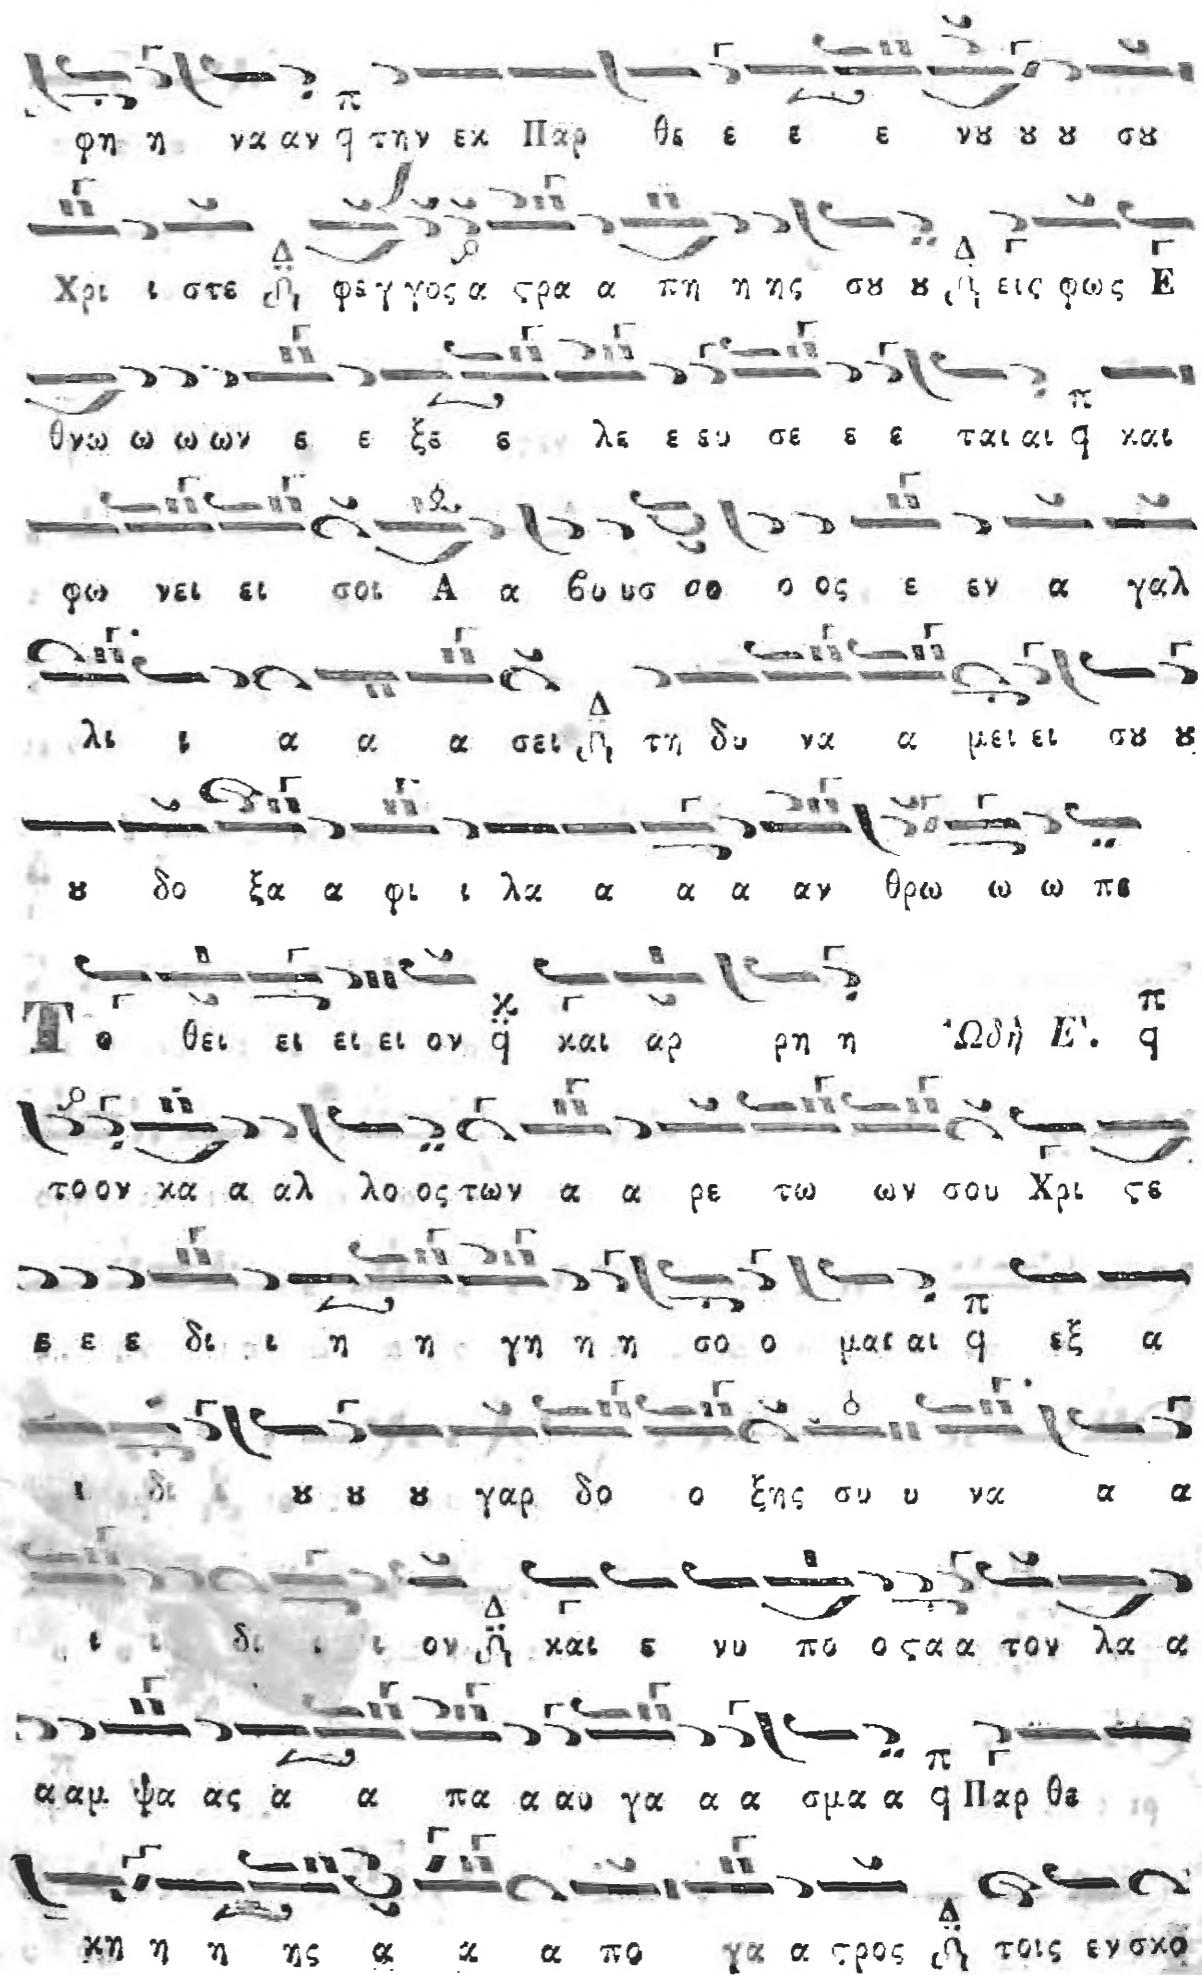 φη η να αν π̣ϥ την εκ Παρ θε ε ε ε νȣ ȣ ȣ σȣ
Χρι ι στε Δ φεγ γος α ϛρα α πη η ης σȣ ȣ Δ εις φως Ε
θνω ω ω ων ε ε ξε ε λε ε ευ σε ε ε ται αι π ϥ και
φω νει ει σοι Α α βυ υσ σο ο ος ε εν α γαλ
λι ι α α α σει Δ τη δυ να α μει ει σȣ ȣ
ȣ δο ξα α φι ι λα α α α αν θρω ω ω πε
Το θει ει ει ει ον κ ϥ και αρ ρη η Ὠδὴ Ε'. π ϥ
το ον κα α αλ λο ος των α α ρε τω ων σου Χρι ϛε
ε ε ε δι ι η η γη η η σο ο μαι αι π ϥ εξ α
ι δι ι ȣ ȣ ȣ γαρ δο ο ξης συ υ να α α
ι ι δι ι ι ον Δ και ε νυ πο ο ϛα α τον λα α
α αμ ψα ας α α πα α αυ γα α α σμα α π ϥ Παρ θε
κη η η ης α κ α πο γα α ϛρος Δ τοις εν σκο